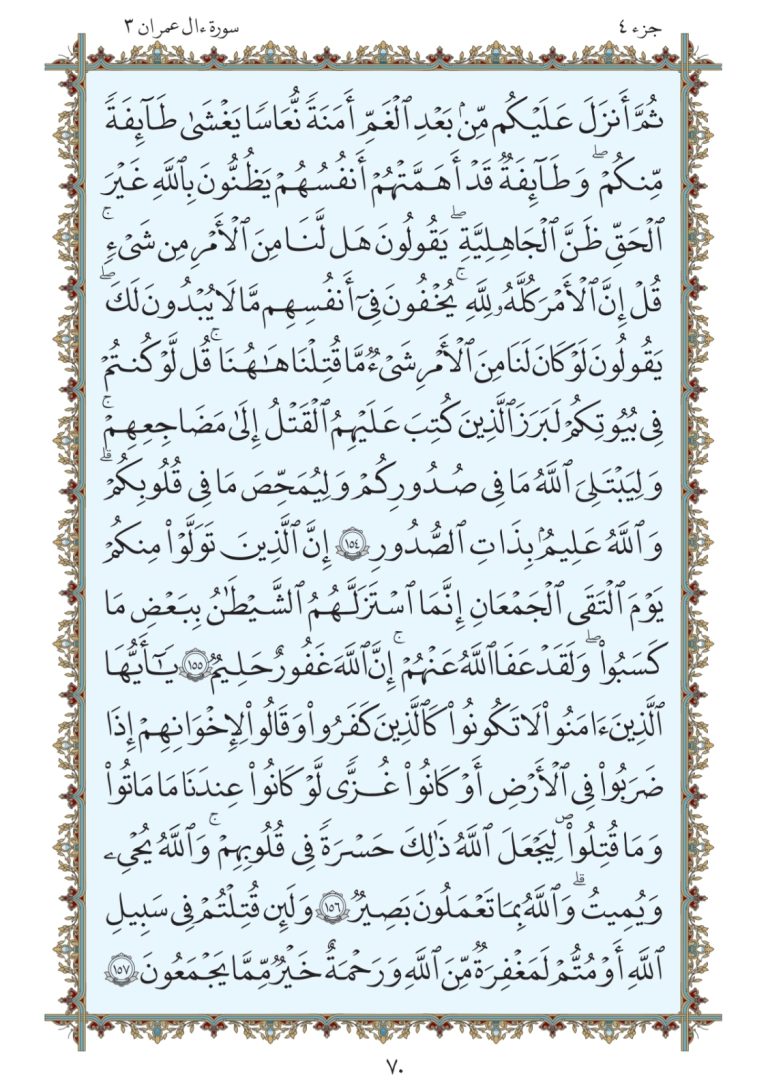 جزء ٤
سورة ءال عمران ٣
ثُمَّ أَنزَلَ عَلَيْكُم مِّنۢ بَعْدِ ٱلْغَمِّ أَمَنَةً نُّعَاسًا يَغْشَىٰ طَآئِفَةً
مِّنكُمْ ۖ وَطَآئِفَةٌ قَدْ أَهَمَّتْهُمْ أَنفُسُهُمْ يَظُنُّونَ بِٱللَّهِ غَيْرَ
ٱلْحَقِّ ظَنَّ ٱلْجَاهِلِيَّةِ ۖ يَقُولُونَ هَل لَّنَا مِنَ ٱلْأَمْرِ مِن شَىْءٍ ۗ
قُلْ إِنَّ ٱلْأَمْرَ كُلَّهُۥ لِلَّهِ ۗ يُخْفُونَ فِىٓ أَنفُسِهِم مَّا لَا يُبْدُونَ لَكَ ۖ
يَقُولُونَ لَوْ كَانَ لَنَا مِنَ ٱلْأَمْرِ شَىْءٌ مَّا قُتِلْنَا هَـٰهُنَا ۗ قُل لَّوْ كُنتُمْ
فِى بُيُوتِكُمْ لَبَرَزَ ٱلَّذِينَ كُتِبَ عَلَيْهِمُ ٱلْقَتْلُ إِلَىٰ مَضَاجِعِهِمْ ۖ
وَلِيَبْتَلِىَ ٱللَّهُ مَا فِى صُدُورِكُمْ وَلِيُمَحِّصَ مَا فِى قُلُوبِكُمْ ۗ
وَٱللَّهُ عَلِيمٌۢ بِذَاتِ ٱلصُّدُورِ ١٥٤ إِنَّ ٱلَّذِينَ تَوَلَّوْا۟ مِنكُمْ
يَوْمَ ٱلْتَقَى ٱلْجَمْعَانِ إِنَّمَا ٱسْتَزَلَّهُمُ ٱلشَّيْطَـٰنُ بِبَعْضِ مَا
كَسَبُوا۟ ۖ وَلَقَدْ عَفَا ٱللَّهُ عَنْهُمْ ۗ إِنَّ ٱللَّهَ غَفُورٌ حَلِيمٌ ١٥٥ يَـٰٓأَيُّهَا
ٱلَّذِينَ ءَامَنُوا۟ لَا تَكُونُوا۟ كَٱلَّذِينَ كَفَرُوا۟ وَقَالُوا۟ لِإِخْوَانِهِمْ إِذَا
ضَرَبُوا۟ فِى ٱلْأَرْضِ أَوْ كَانُوا۟ غُزًّى لَّوْ كَانُوا۟ عِندَنَا مَا مَاتُوا۟
وَمَا قُتِلُوا۟ لِيَجْعَلَ ٱللَّهُ ذَٰلِكَ حَسْرَةً فِى قُلُوبِهِمْ ۗ وَٱللَّهُ يُحْىِۦ
وَيُمِيتُ ۗ وَٱللَّهُ بِمَا تَعْمَلُونَ بَصِيرٌ ١٥٦ وَلَئِن قُتِلْتُمْ فِى سَبِيلِ
ٱللَّهِ أَوْ مُتُّمْ لَمَغْفِرَةٌ مِّنَ ٱللَّهِ وَرَحْمَةٌ خَيْرٌ مِّمَّا يَجْمَعُونَ ١٥٧
٧٠